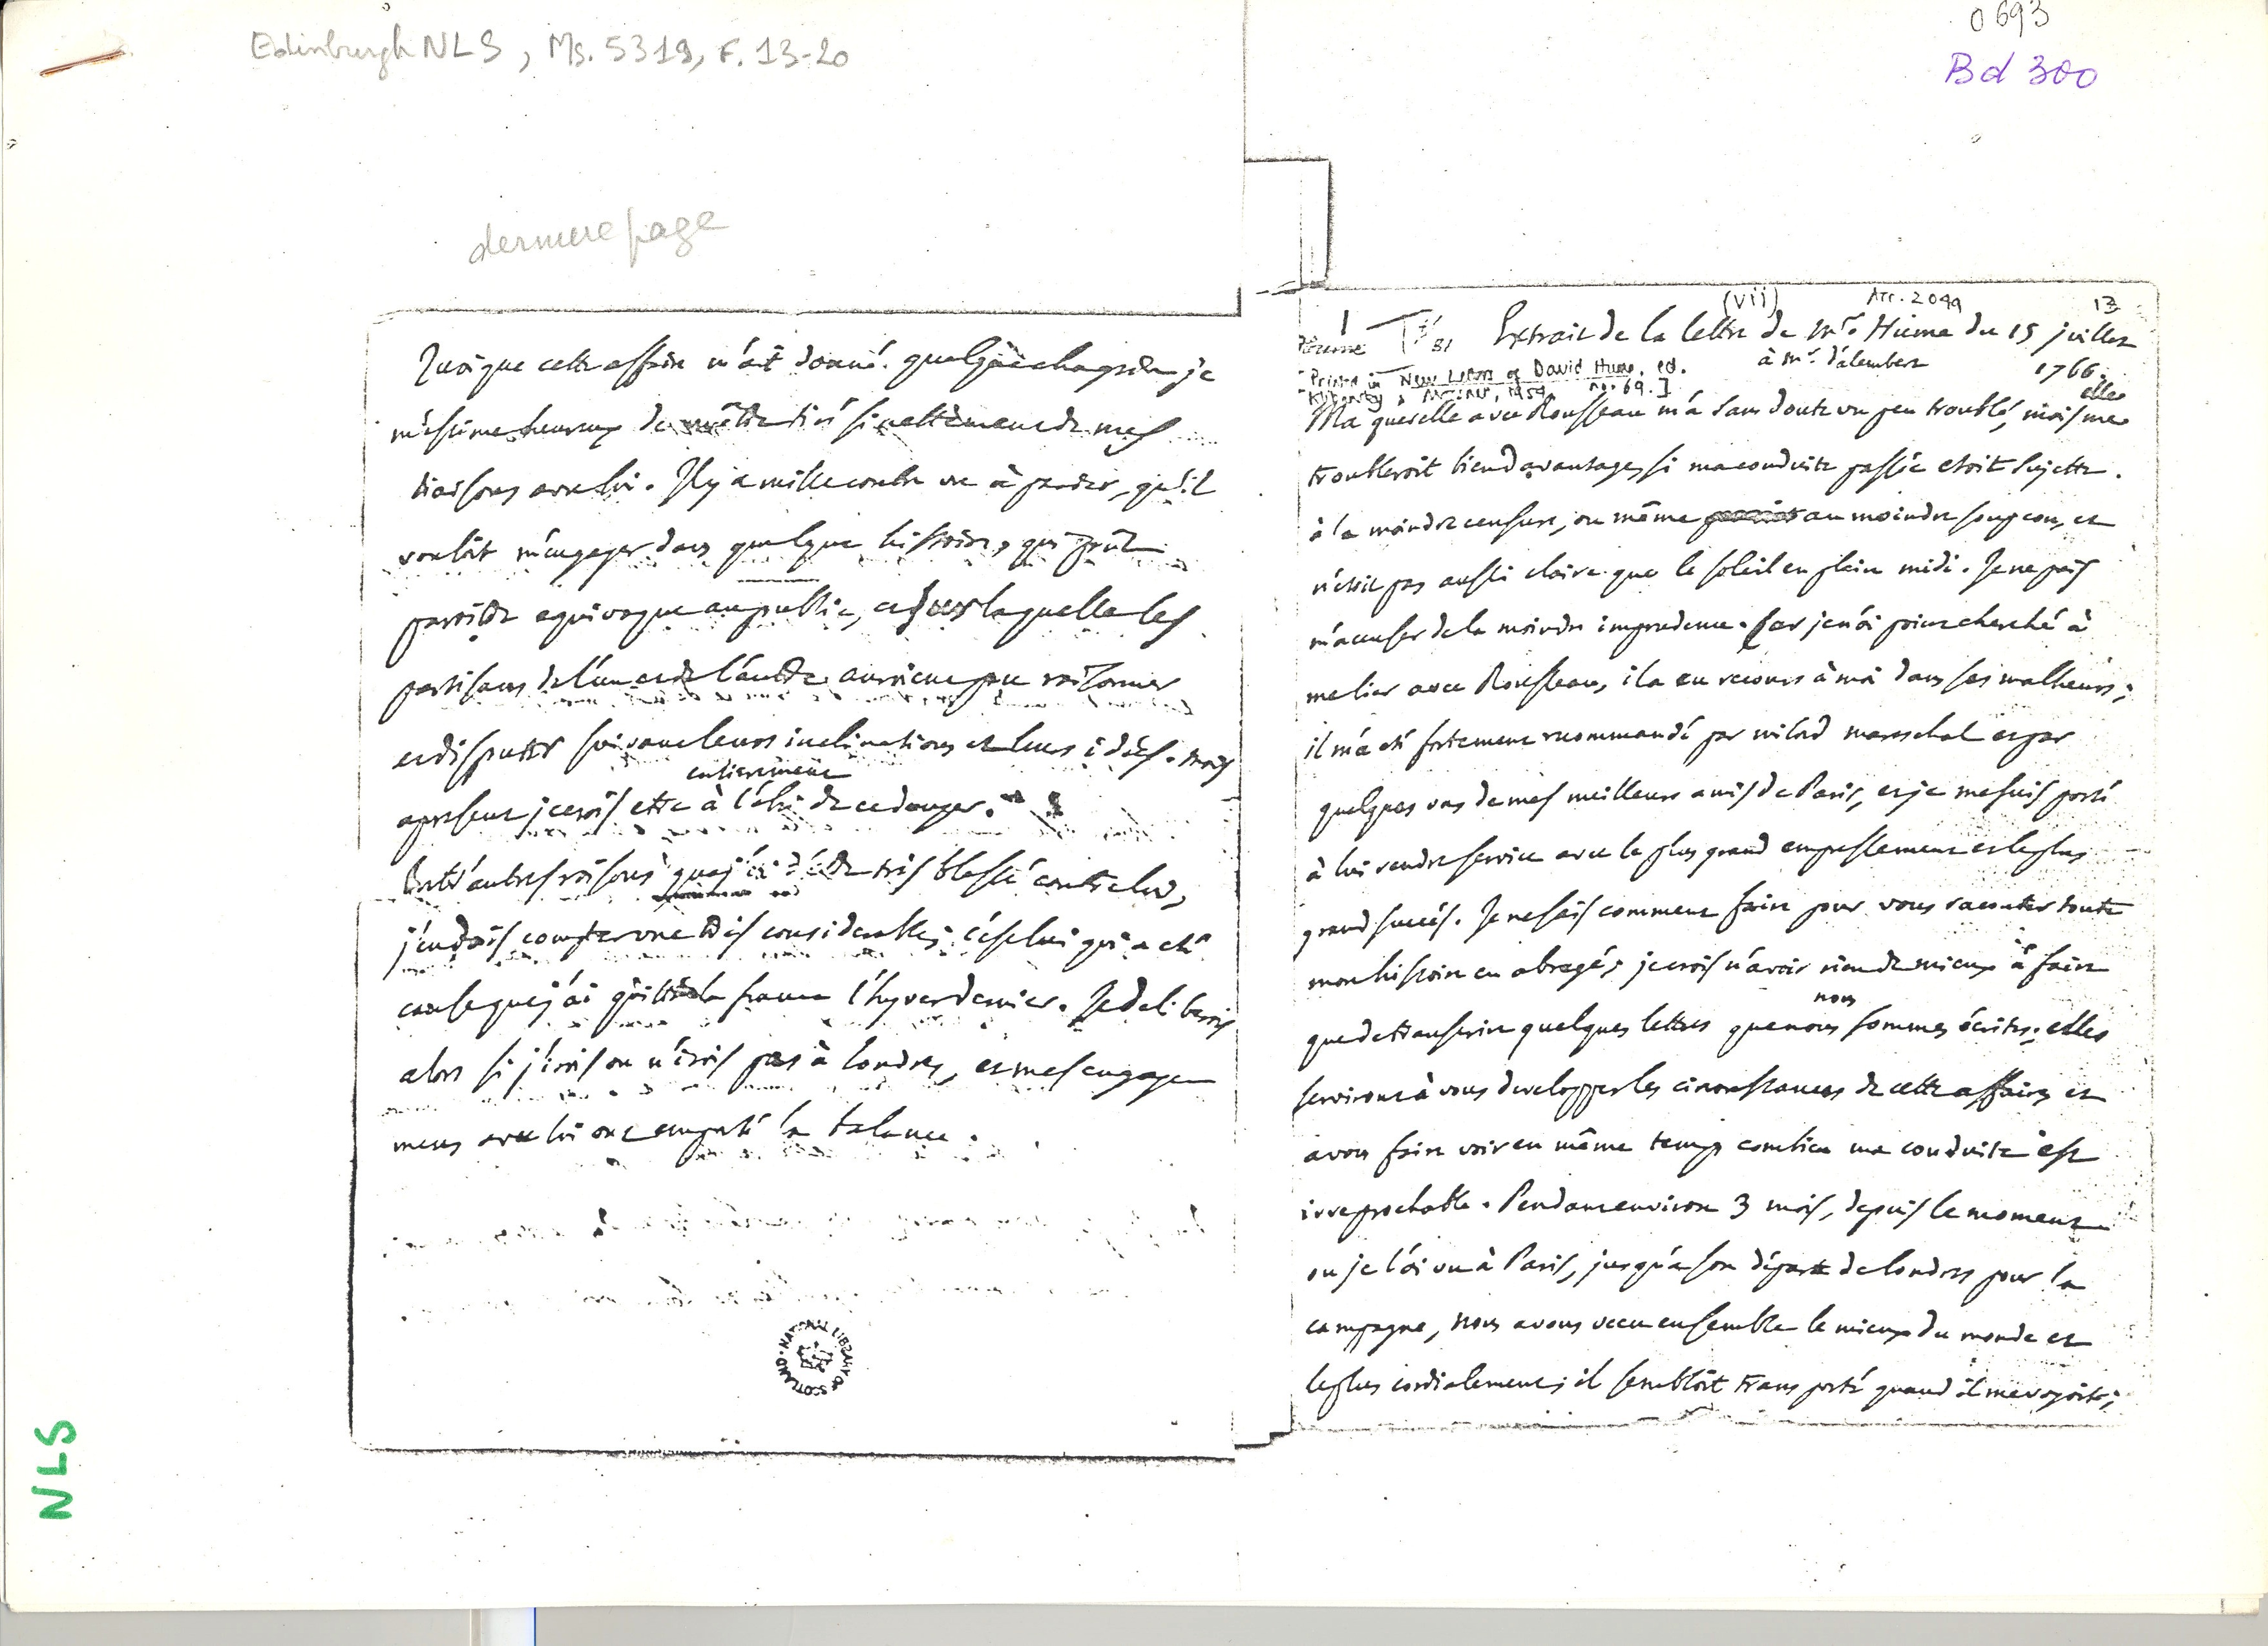 Edinburgh NLS, Ms. 5319, F. 13-20
0693
Bd 300
derniere page
Quoique cette affaire m'ait donné quelque chagrin je
m'estime heureux de m'être tiré si nettement de mes
liaisons avec lui. Il y a mille contre un à parier, qu'il
voulût m'engager dans quelque histoire, qui pût
paroitre equivoque au public, et sur laquelle les
partisans de l'un et de l'autre auroient pu raisonner
et disputer suivant leurs inclinations et leurs idées. mais
entierement
apresent je crois etre à l'abri de ce danger.
Entr'autres raisons que j'ai d'être très blessé contre lui,
j'en dois compter une très considerable; c'est lui qui a eté
cause que j'ai quitté la france l'hyver dernier. Je deliberois
alors si j'irois ou n'irois pas à londres, et mes engage
mens avec lui ont emporté la balance.
NATIONAL LIBRARY OF SCOTLAND
NLS
(vii)
Acc. 2049
13
Hume
Extrait de la lettre de Mr. Hume du 15 juillet
à Mr. d'alembert
1766.
Printed in New Letters of David Hume, ed.
Klibansky & Mossner, 1954, no. 69.]
elle
Ma querelle avec Rousseau m'a sans doute un peu troublé, mais me
troubleroit bien davantage, si ma conduite passée etoit sujette
à la moindre censure, ou même au moindre soupçon, et
n'etoit pas aussi claire que le soleil en plein midi. Je ne puis
m'accuser de la moindre imprudence. Car je n'ai point cherché à
me lier avec Rousseau, il a eu recours à moi dans ses malheurs;
il m'a eté fortement recommandé par milord mareschal et par
quelques uns de mes meilleurs amis de Paris, et je me suis porté
à lui rendre service avec le plus grand empressement et le plus
grand succés. Je ne sais comment faire pour vous raconter toute
mon histoire en abregé; je crois n'avoir rien de mieux à faire
nous
que de transcrire quelques lettres que nous sommes écrites; elles
serviront à vous developper les circonstances de cette affaire, et
a vous faire voir en même temps combien ma conduite est
irreprochable. Pendant environ 3 mois, depuis le moment
ou je l'ai vu à Paris, jusqu'à son départ de londres pour la
campagne, nous avons vecu ensemble le mieux du monde et
le plus cordialement; il sembloit transporté quand il me voyoit;